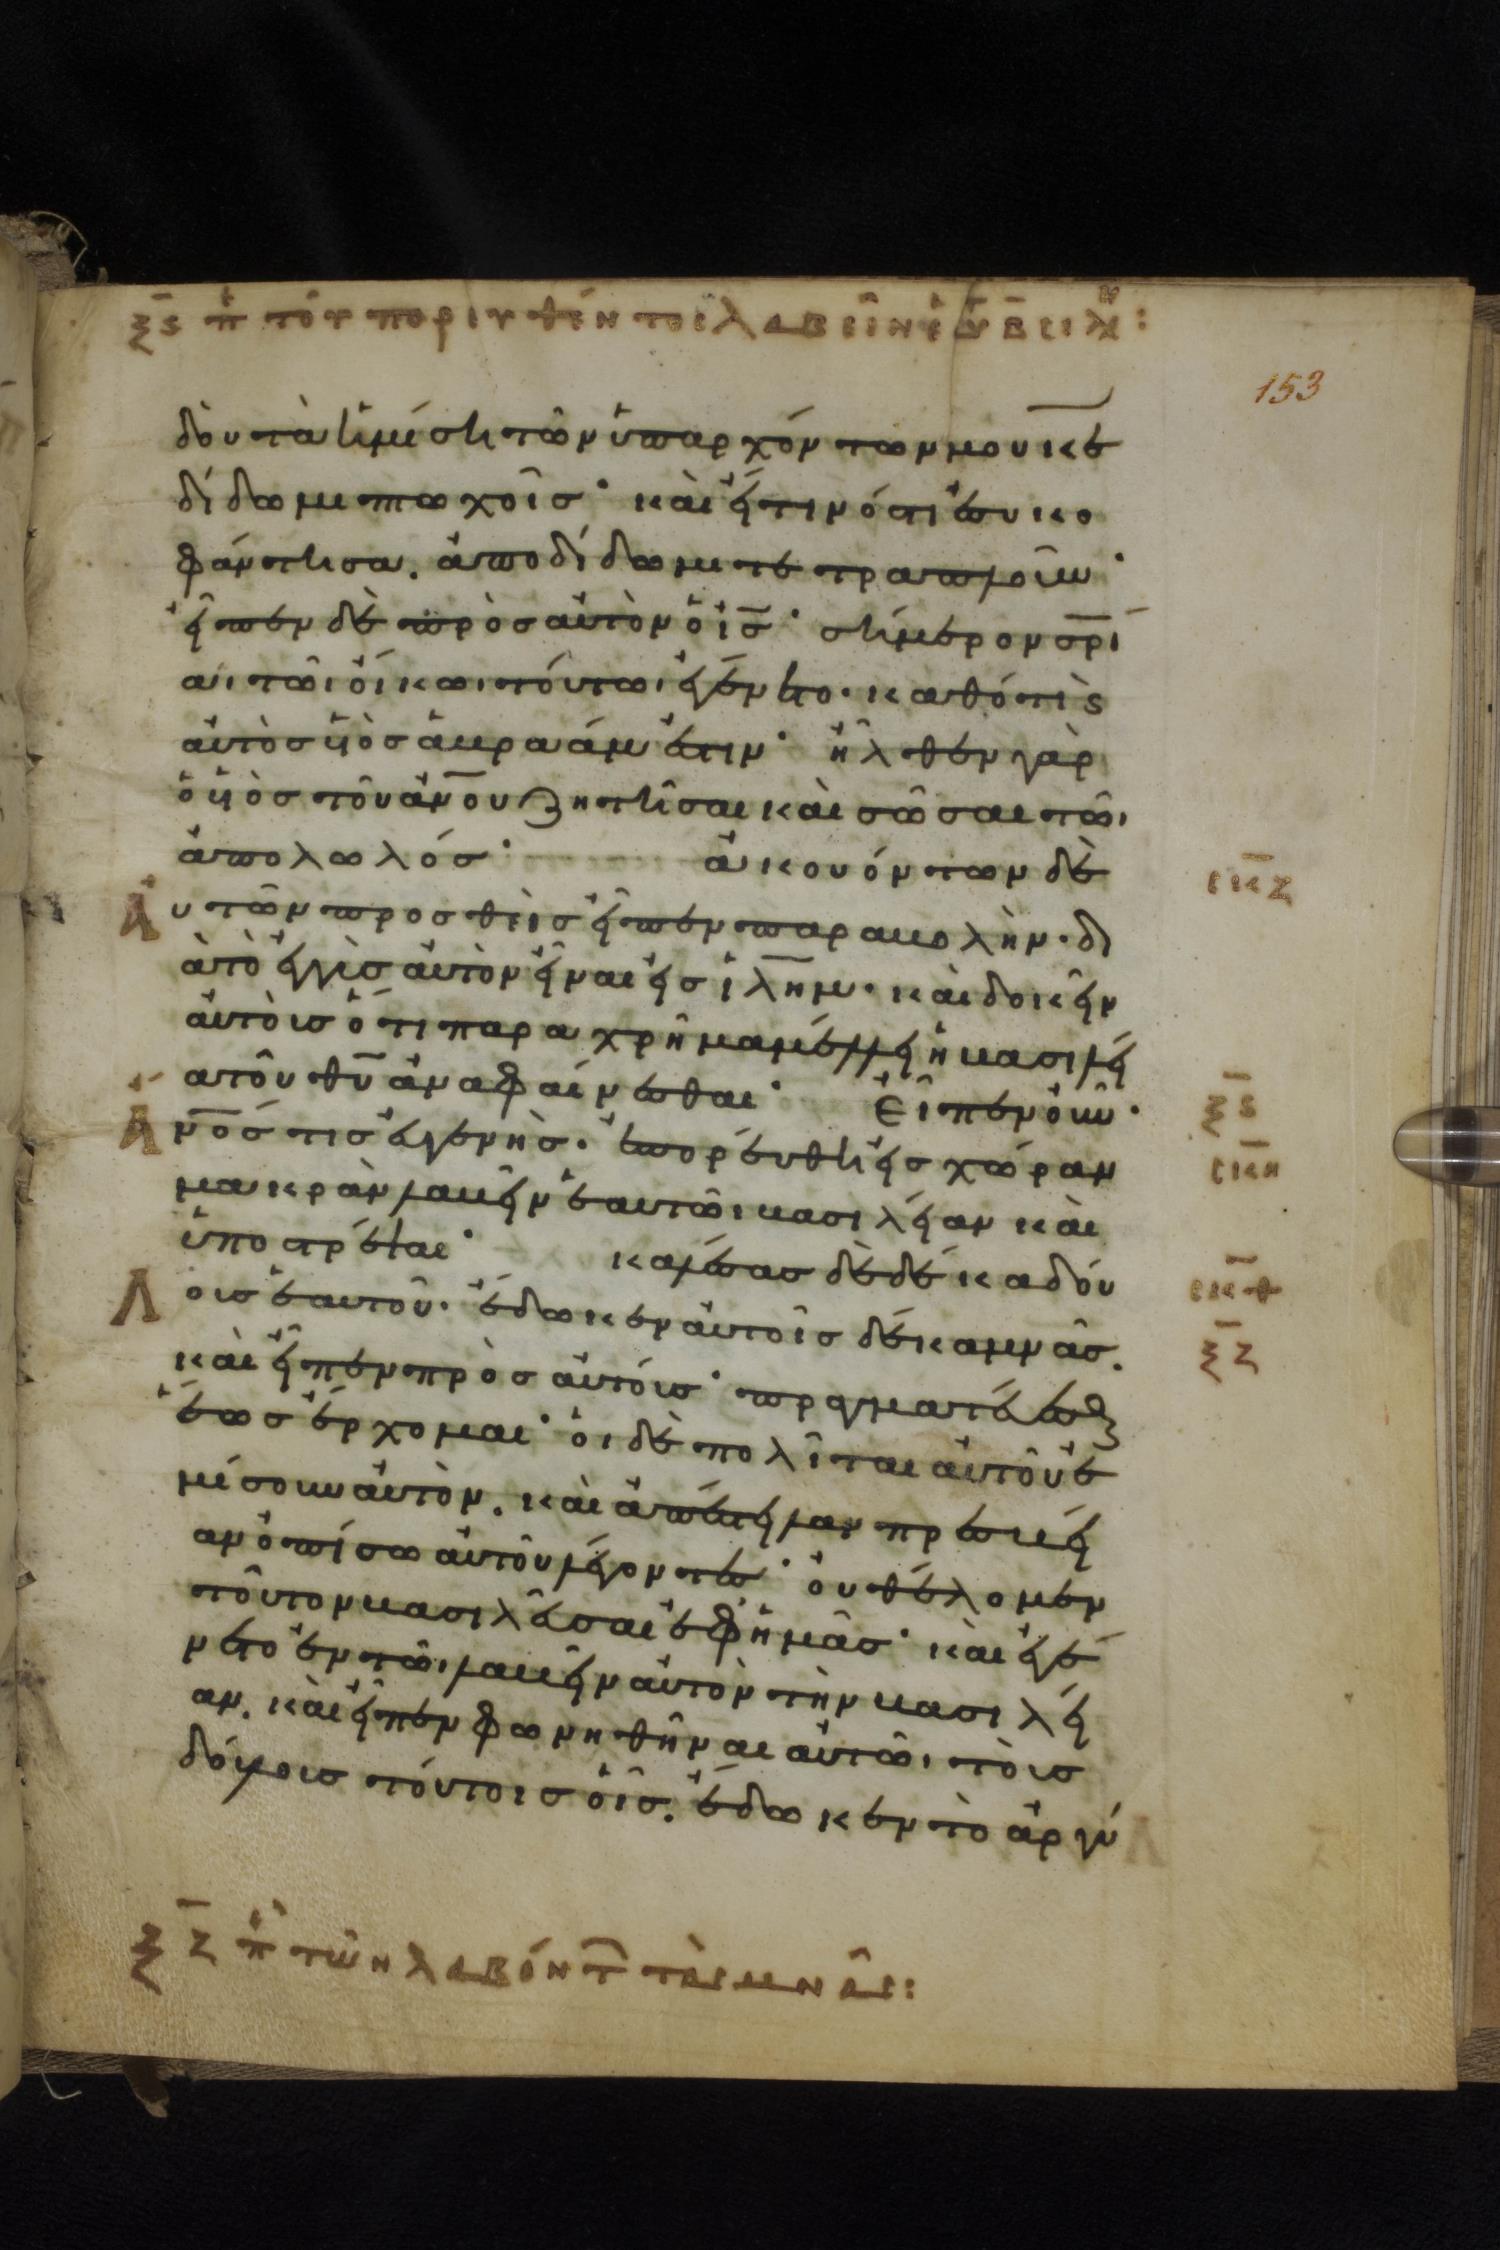 ξς π τοῦ πορευθέντος λαβεῖν ἑαυτῷ βασιλεί:
153
δοὺ τὰ ἡμίση τῶν ὑπαρχόντων μου κε
δίδωμι πτωχοῖσ· καὶ εἴ τινός τι ἐσυκο
φάντησα. ἀποδίδωμι τετραπλοῦν·
εἶπεν δὲ πρὸσ αὐτὸν ὁ ισ· σήμερον σρί
α· τῶι οἴκωι τούτωι ἐγένετο· καθότι ς
αὐτὸσ υἱὸσ ἀβραάμ ἐστιν· ἦλθεν γὰρ
ὁ υἱὸσ τοῦ ἀνου ζητῆσαι καὶ σῶσαι τῶ
ἀπολωλόσ· ἀκουόντων δὲ
ϲκζ
Αυτῶν προσθεὶσ εἶπεν παραβολὴν· δι
ὰ τὸ ἐγγὺσ αὐτὸν εἶναι εἰσ ιλημ· καὶ δοκεῖν
αὐτοὺσ ὅτι παραχρῆμα μέλλει ἡ βασιλεί
α τοῦ θυ ἀναφαίνεσθαι· Εἶπεν οὖν·
ξς
Ανοσ τισ εὐγενὴσ· ἐπορεύθη εἰσ χώραν
ϲκη
μακρὰν λαβεῖν ἑαυτῶι βασιλείαν καὶ
ὑποστρέψαι· καλέσασ δὲ δέκα δού
ϲκθ
Λοισ ἑαυτοῦ· ἔδωκεν αὐτοῖσ δέκα μνᾶσ.
ξζ
καὶ εἶπεν πρὸσ αὐτούσ· πραγματεύεσθε
ἕωσ ἔρχομαι· οἱ δὲ πολῖται αὐτοῦ ἐ
μίσουν αὐτὸν. καὶ ἀπέστειλαν πρεσβεί
αν ὀπίσω αὐτοῦ λέγοντεσ· οὐ θέλομεν
τοῦτον βασιλεῦσαι ἐφ ἡμᾶσ· καὶ ἐγέ
νετο ἐν τῶι λαβεῖν αὐτὸν τὴν βασιλεί
αν. καὶ εἶπεν φωνηθῆναι αὐτῶι τοὺσ
δούλουσ τούτουσ οἷσ. ἔδωκεν τὸ ἀργύ
ξζ π τῶν λαβόντ τὰς μνᾶς: